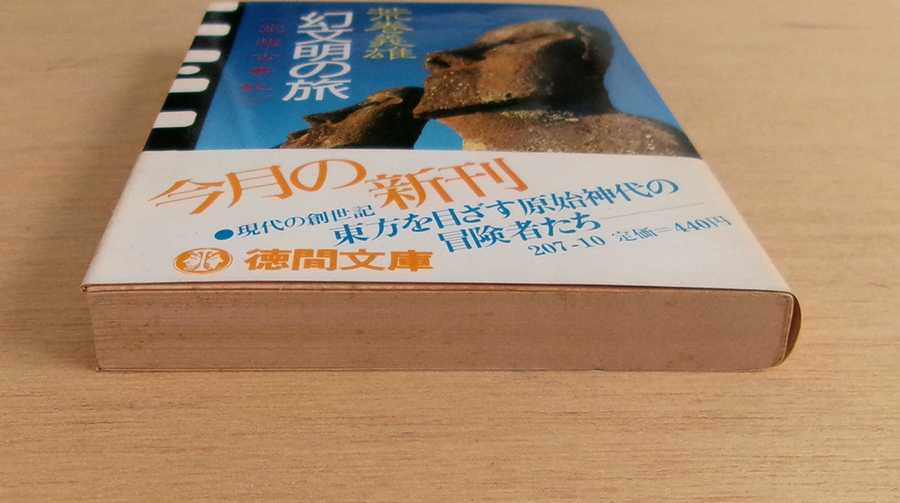 荒巻義雄
幻文明の旅
今月の新刊
●現代の創世記
東方を目ざす原始神代の
冒険者たち
207-10 定価=440円
徳間文庫